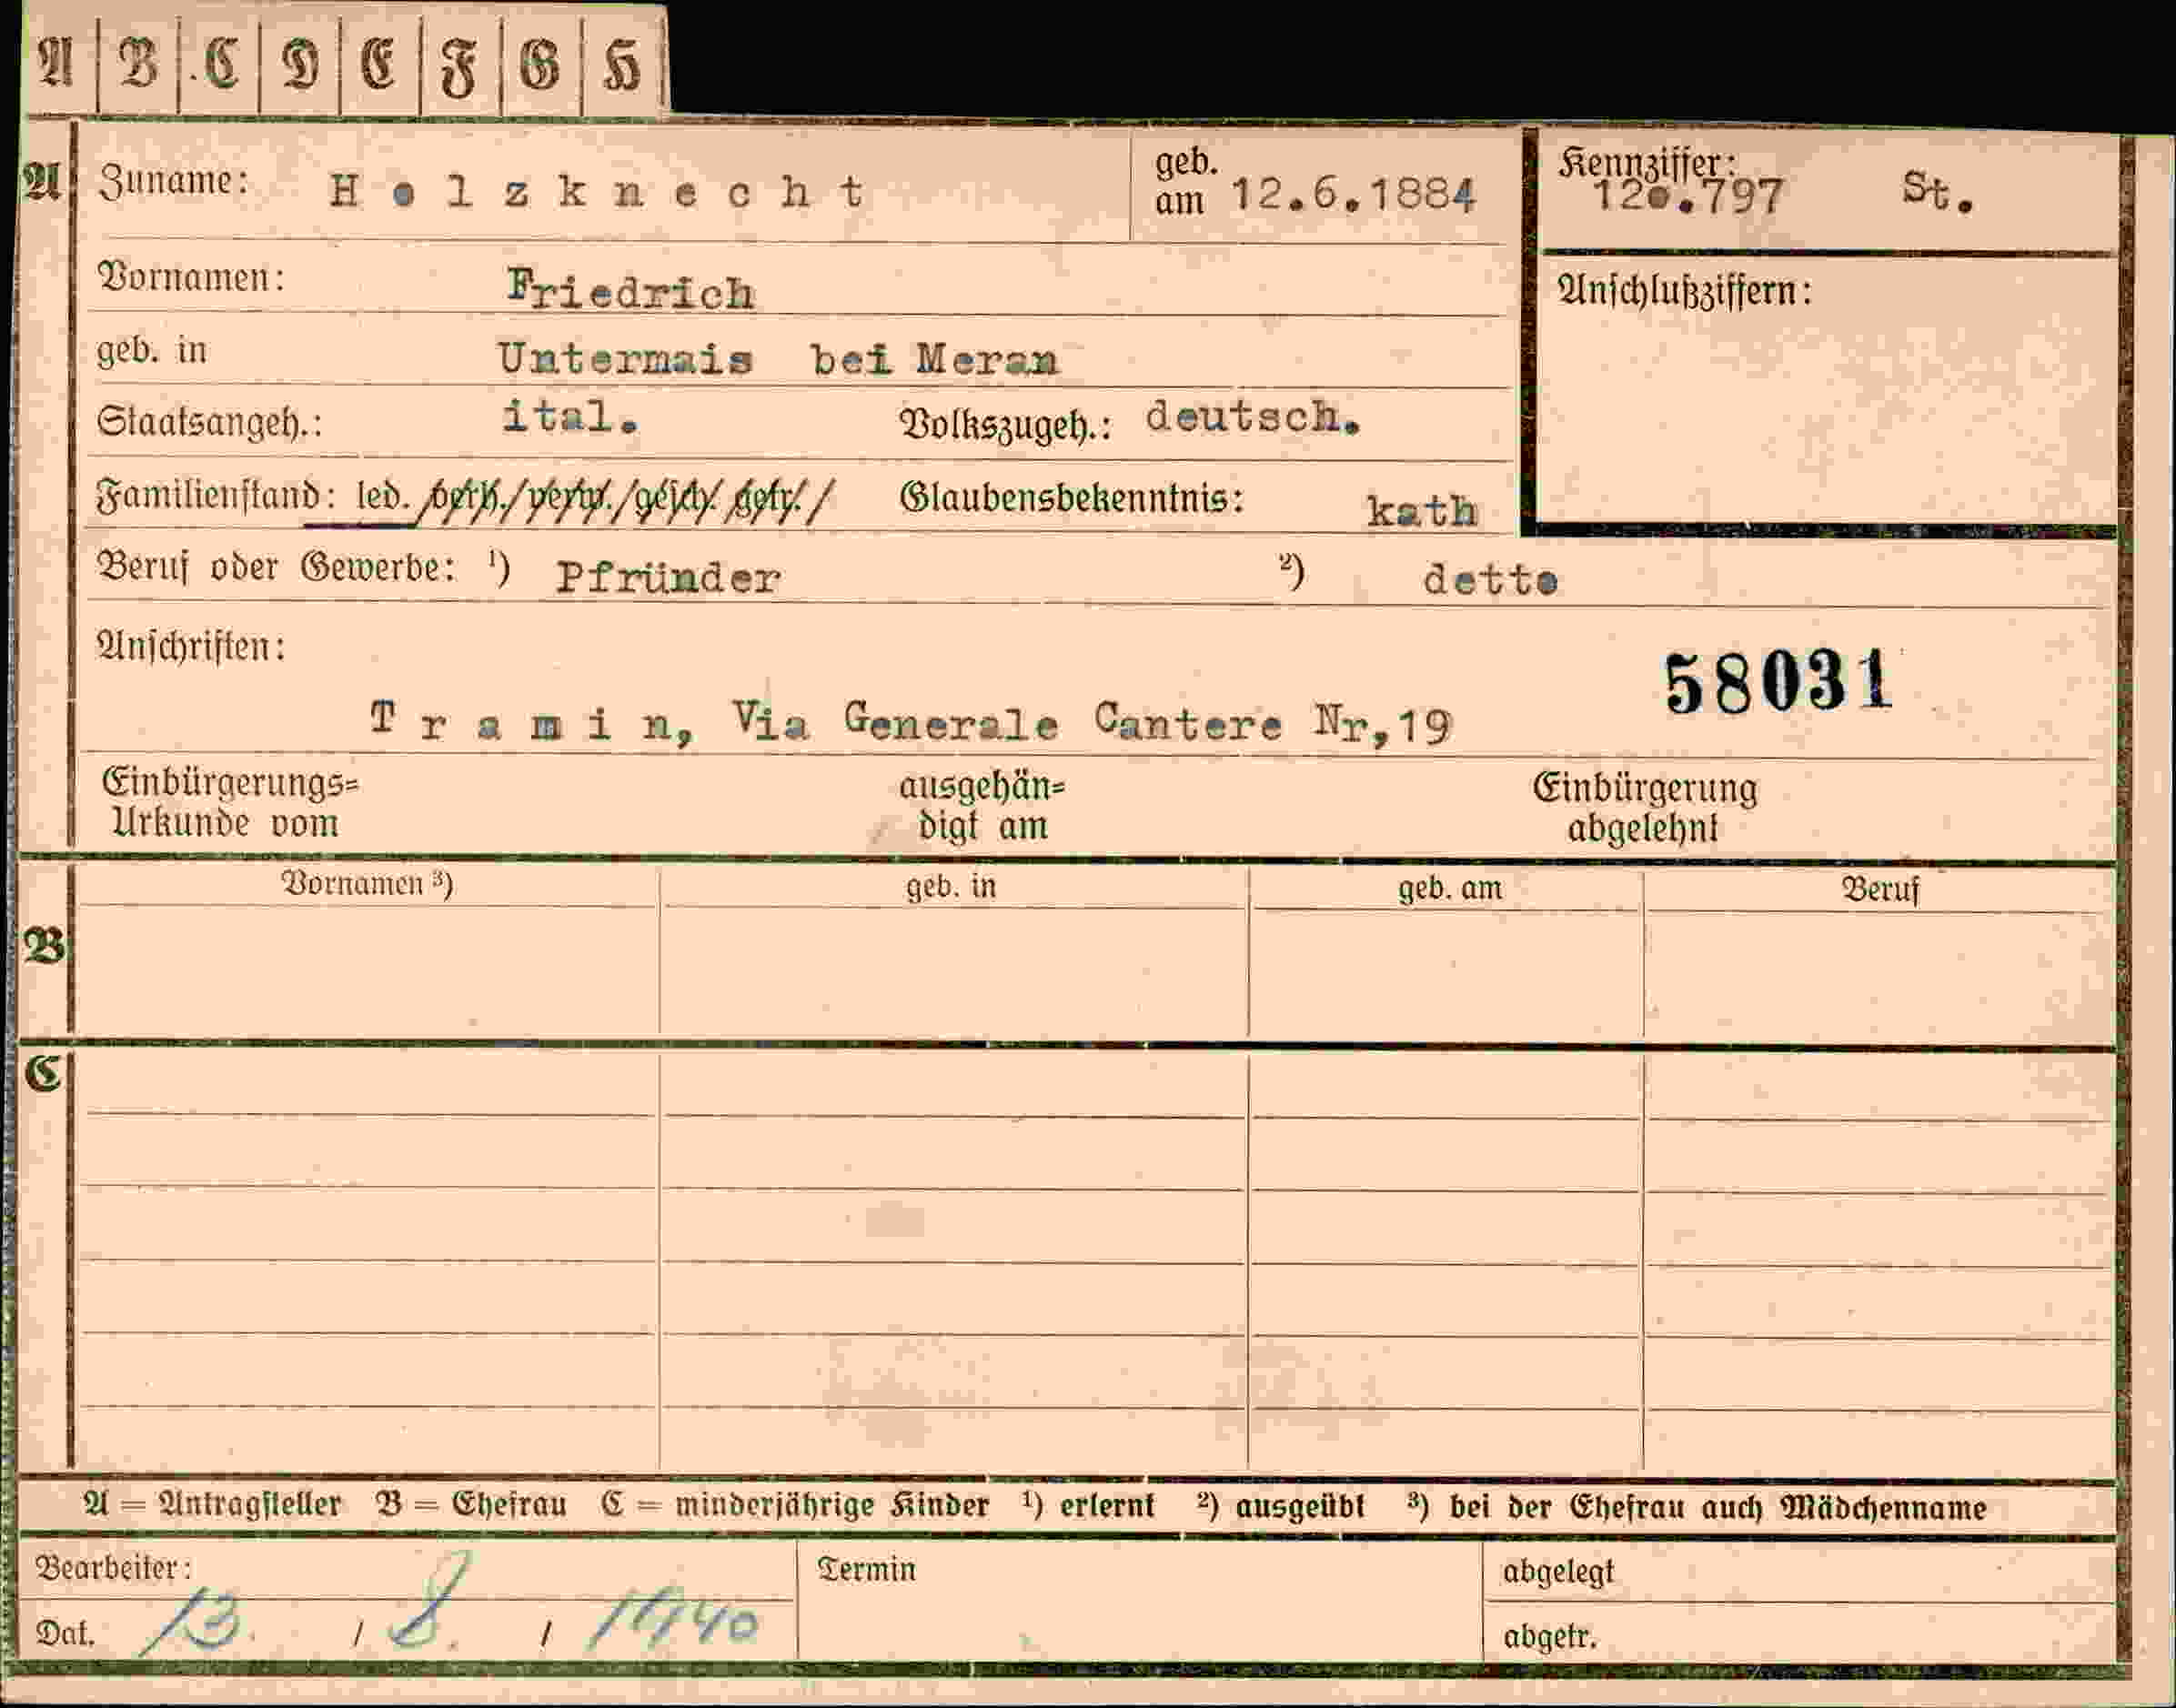 A B C D E F G H
A Zuname: Holzknecht geb. am 12.6.1884 Kennziffer: 120.797 St.
Vornamen: Friedrich Anschlußziffern:
geb. in Untermais bei Meran
Staatsangeh.: ital. Volkszugeh.: deutsch.
Familienstand: led. /verh./verw./gesch./getr./ Glaubensbekenntnis: kath
Beruf oder Gewerbe: ¹) Pfründer ²) detto
Anschriften: 58031
Tramin, Via Generale Cantore Nr,19
Einbürgerungs= ausgehän= Einbürgerung
Urkunde vom digt am abgelehnt
Vornamen ³) geb. in geb. am Beruf
B
C
A = Antragsteller B = Ehefrau C = minderjährige Kinder ¹) erlernt ²) ausgeübt ³) bei der Ehefrau auch Mädchenname
Bearbeiter: Termin abgelegt
Dat. 13. / 8. / 1940 abgetr.